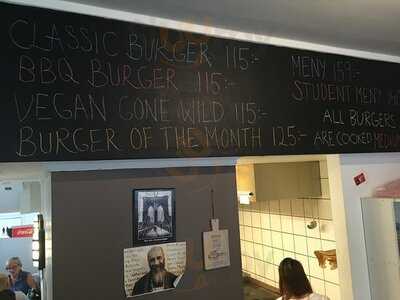 CLASSIC BURGER 115:-
BBQ BURGER 115:-
VEGAN GONE WILD 115:-
BURGER OF THE MONTH 125:-
MENY 159:-
STUDENT MENY
ALL BURGERS
ARE COOKED